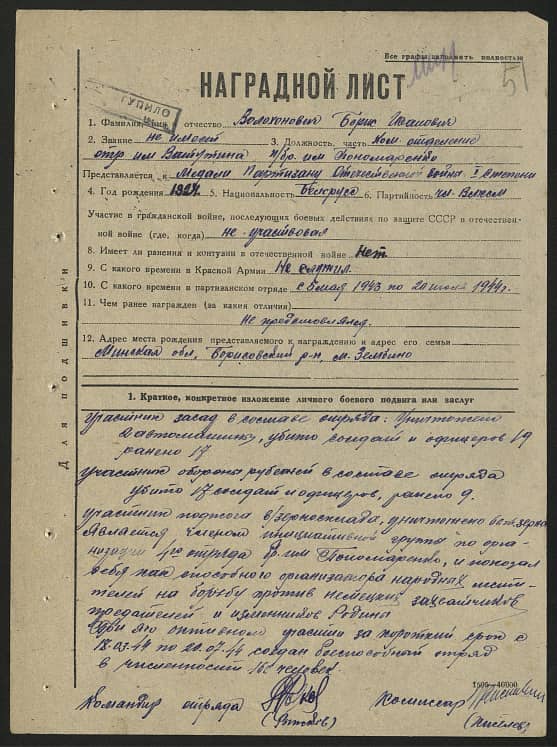 Все графы заполнять полностью
51
НАГРАДНОЙ ЛИСТ
1. Фамилия, имя, отчество Волоконович Борис Иванович
2. Звание не имеет 3. Должность, часть ком. отделение
отр им Ватутина п/бр. им Пономаренко
Представляется к Медали Партизану Отечественной войны I степени
4. Год рождения 1924. 5. Национальность Белорус 6. Партийность чл. ВЛКСМ
Участие в гражданской войне, последующих боевых действиях по защите СССР и отечествен-
ной войне (где, когда) не участвовал
8. Имеет ли ранения и контузии в отечественной войне нет
9. С какого времени в Красной Армии не служил.
10. С какого времени в партизанском отряде с 5 мая 1943 по 20 июля 1944 г.
11. Чем ранее награжден (за какия отличия)
не представлялся.
12. Адрес места рождения представляемого к награждению и адрес его семьи
Минская обл, Борисовский р-н, м. Зембино
Для подшивки
1. Краткое, конкретное изложение личного боевого подвига или заслуг
Участник засад в составе отряда: Уничтожено
2 автомашины, убито солдат и офицеров 19
ранено 17
Участник обороны рубежей в составе отряда
убито 17 солдат и офицеров, ранено 9.
Участник поджога в/зерносклада, уничтожено зерна
Является членом инициативной группы по орга-
низации 4го отряда бр. им Пономаренко, и показал
себя как способного организатора народных мсти-
телей на борьбу против немецких захватчиков
предателей и изменников Родины
При его активном участии за короткий срок с
18.03.44 по 20.07.44 создан боеспособный отряд
в численности человек.
Командир отряда
Комиссар
(Киселев)